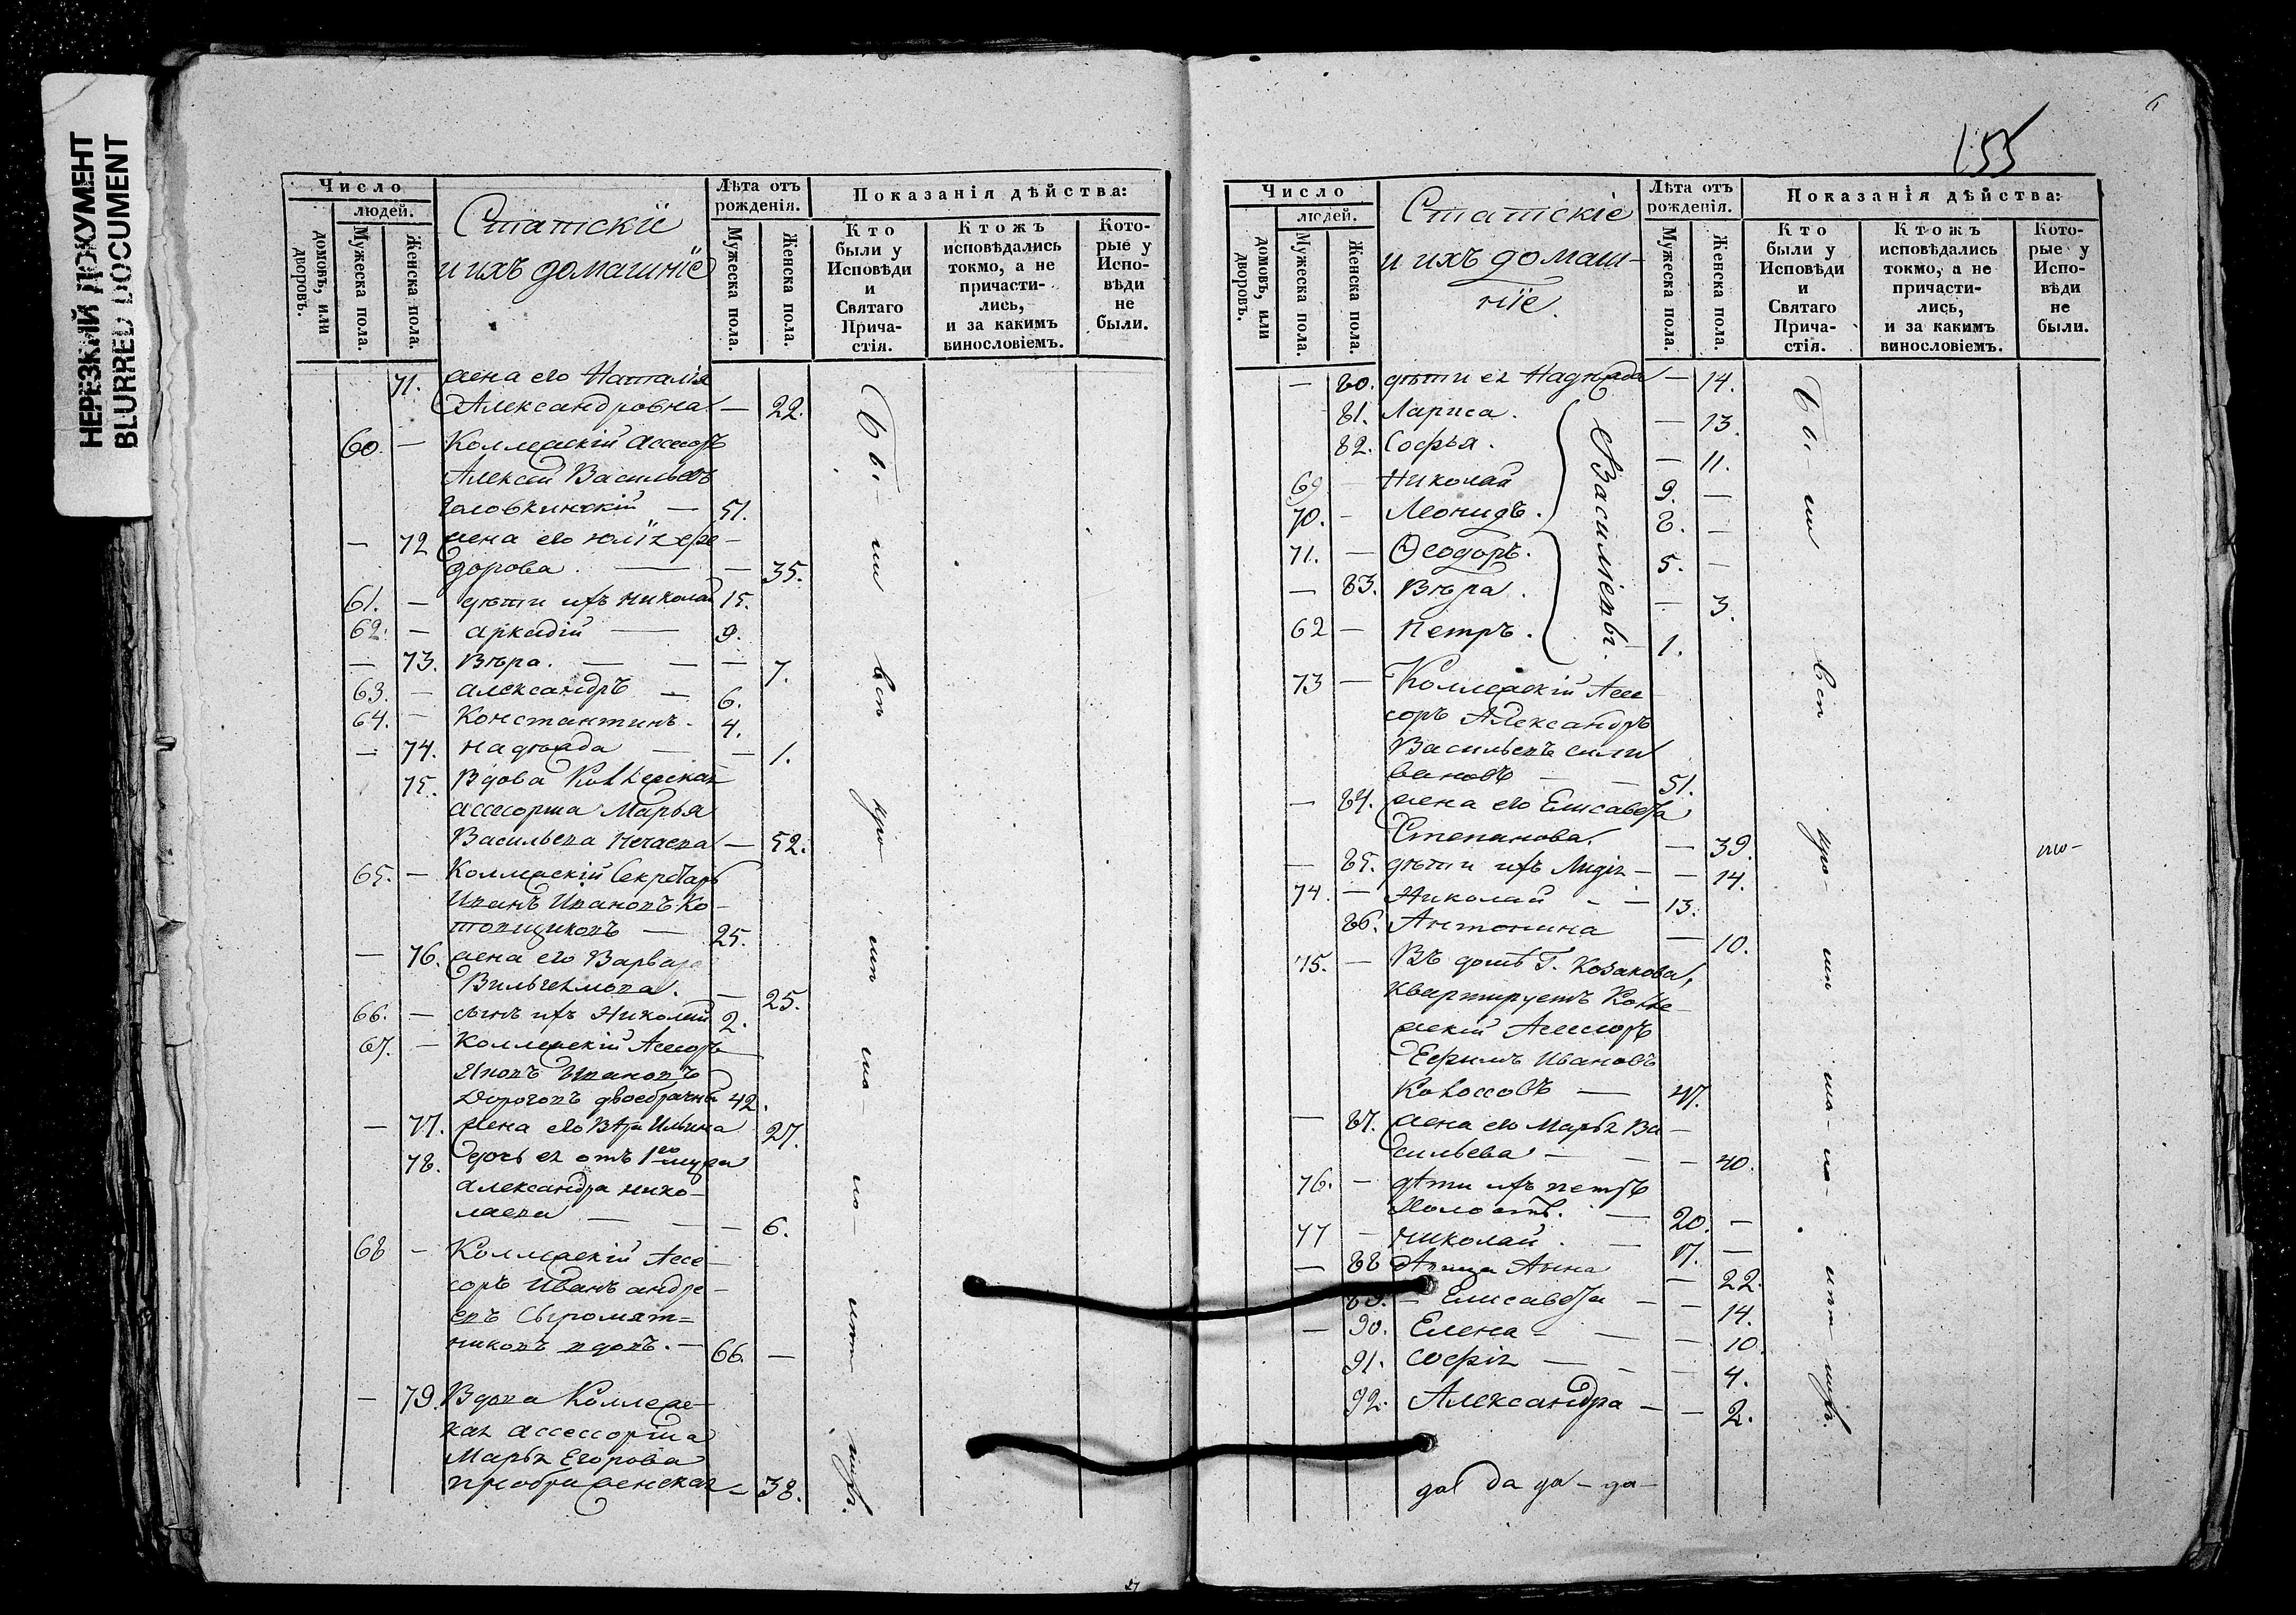 НЕРЕЗКИЙ ДОКУМЕНТ
BLURRED DOCUMENT
Число
людей.
домовъ, или дворовъ.
Мужеска пола.
Женска пола.
Статскіе
и ихъ домашніе
Лѣта отъ рожденія.
Мужеска пола.
Женска пола.
Показанія дѣйства:
Кто были у Исповѣди и Святаго Прича-стія.
Ктожъ исповѣдались токмо, а не причасти-лись, и за какимъ винословіемъ.
Кото-рые у Испо-вѣди не были.
71. жена его Наталія
Александровна — 22.
60. — Коллежскій Ассесоръ
Алексей Васильевъ
Головкинскій — 51.
— 72 жена его Юлія Ѳео-
дорова. — 35.
61. — дѣти ихъ Николай 15.
62. — Аркадій — 9.
— 73. Вѣра. — — — 7.
63. — Александръ — 6.
64. — Константинъ. 4.
— 74. Надежда — — 1.
75. Вдова Коллежская
ассесорша Марья
Васильева Нечаева — 52.
65. — Коллежскій Секретарь
Иванъ Ивановъ Ко-
товщиковъ — 25.
— 76. жена его Варвара
Вильгелмова. — 25.
66. — сынъ ихъ Николай 2.
67. — Коллежскій Ассесоръ
Ивановъ
двоебрачный 42.
— 77. жена его Вѣра Ильина 27.
78. дочь ея отъ 1го мужа
Александра Нико-
лаева — — — 6.
68 — Коллежскій Ассе-
соръ Иванъ Андре-
евъ Сыромят=
никовъ вдовъ. — 66. —
— 79. Вдова Коллеж-
кая ассессорша
Марья Егорова
Преображенская — 38.
бы-ли всѣ
155
6
Число
людей.
домовъ, или дворовъ.
Мужеска пола.
Женска пола.
Статскіе
и ихъ домаш-
ніе.
Лѣта отъ рожденія.
Мужеска пола.
Женска пола.
Показанія дѣйства:
Кто были у Исповѣди и Святаго Прича-стія.
Ктожъ исповѣдались токмо, а не причасти-лись, и за какимъ винословіемъ.
Кото-рые у Испо-вѣди не были.
— 80. дѣти ея Надежда — 14.
81. Лариса. — 13.
82. Софья. — 11.
69 — Николай 9. —
70. — Леонидъ. 8. —
71. — Ѳеодоръ. 5. —
— 83. Вѣра. — 3.
62 — Петръ. 1.
Васильевы.
73 — Коллежскій Ассе-
соръ Александръ
Васильевъ Сели
вановъ — — 51.
— 84. жена его Елисавета
Степанова. — 39.
— 85. дѣти ихъ Лидія — — 14.
74. — Николай — — 13.
86. Антонина — 10.
75. — Въ домѣ Г. Козакова,
квартируетъ Колле-
жскій Ассесоръ
Ефимъ Ивановъ
Колоссовъ — 47.
— 87. жена его Марья Ва-
сильева — — — 40.
76. — дѣти ихъ Петръ
холостъ. — 20. —
77 — Николай. — 17. —
— 88 Анна — 22.
89. — Елисавета — — 14.
— 90. Елена — — — 10
91. Софія — — — 4.
92. Александра — — 2.
бы-ли всѣ
да да да-да-